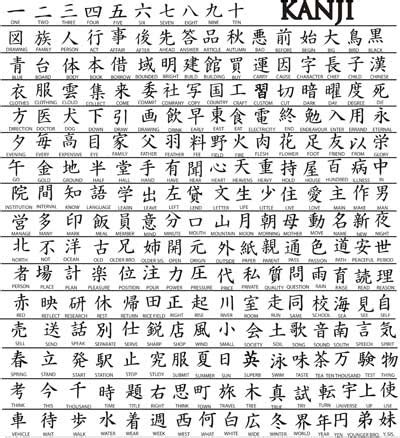 一 二 三 四 五 六 七 八 九 十 KANJI
ONE TWO THREE FOUR FIVE SIX SEVEN EIGHT NINE TEN
図 族 人 行 事 後 先 答 品 秋 悪 前 始 大 鳥 黒
DRAWING FAMILY PERSON ACT AFFAIR AFTER AHEAD ANSWER ARTICLE AUTUMN BAD BEFORE BEGIN BIG BIRD BLACK
青 台 体 本 借 域 明 建 館 買 運 因 字 長 子 漢
BLUE BOARD BODY BOOK BORROW BOUNDED BRIGHT BUILD BUILDING BUY CARRY CAUSE CHARACTER CHIEF CHILD CHINESE
衣 服 雲 集 来 委 社 写 国 工 習 切 暗 曜 度 死
CLOTHES CLOTHING CLOUD COLLECT COME COMMIT COMPANY COPY COUNTRY CRAFT CUSTOM CUT DARK DAY DEGREE DIE
方 医 犬 下 引 画 飲 早 東 食 電 終 勉 入 用 永
DIRECTION DOCTOR DOG DOWN DRAW DRAWING DRINK EARLY EAST EAT ELECTRICITY END ENDEAVOUR ENTER ERRAND ETERNAL
夕 毎 高 目 家 父 羽 料 野 火 肉 花 足 友 以 栄
EVENING EVERY EXPENSIVE EYE FAMILY FATHER FEATHER FEE FIELD FIRE FLESH FLOWER FOOT FRIEND FROM GLORY
行 金 地 半 堂 手 有 聞 心 天 重 持 屋 百 病 中
GO GOLD GROUND HALF HALL HAND HAVE HEAR HEART HEAVENS HEAVY HOLD HOUSE HUNDRED ILLNESS IN
院 間 知 語 学 出 左 貸 文 生 少 住 愛 主 作 男
INSTITUTION INTERVAL KNOW LANGUAGE LEARN LEAVE LEFT LEND LETTER LIFE LITTLE LIVE LOVE MAIN MAKE MAN
営 多 印 飯 員 意 分 口 山 月 朝 母 動 名 新 夜
MANAGE MANY MARK MEAL MEMBER MIND MINUTE MOUTH MOUNTAIN MOON MORNING MOTHER MOVE NAME NEW NIGHT
北 不 洋 古 兄 姉 開 元 外 紙 親 通 色 道 安 世
NORTH NOT OCEAN OLD OLDER BRO. OLDER SIS. OPEN ORIGIN OUTSIDE PAPER PARENT PASS PASSION PATH PEACEFUL PERIOD
者 場 計 楽 位 注 力 圧 代 私 質 問 雨 育 読 理
PERSON PLACE PLAN PLEASURE POSITION POUR POWER PRESSURE PRICE PRIVATE QUALITY QUESTION RAIN RAISE READ REASON
赤 映 研 休 帰 田 正 起 川 室 走 同 校 海 見 自
RED REFLECT RESEARCH REST RETURN RICE FIELD RIGHT RISE RIVER ROOM RUN SAME SCHOOL SEA SEE SELF
売 送 話 別 仕 鋭 店 風 小 会 土 歌 音 南 言 気
SELL SEND SPEAK SEPARATE SERVE SHARP SHOP WIND SMALL SOCIETY SOIL SONG SOUND SOUTH SPEECH SPIRIT
春 立 発 駅 止 究 服 夏 日 英 泳 味 茶 万 験 物
SPRING STAND START STATION STOP STUDY SUBMIT SUMMER SUN SUPERB SWIM TASTE TEA TEN THOUSAND TEST THING
考 今 千 時 題 右 思 町 旅 木 真 試 転 宇 上 使
THINK THIS THOUSAND TIME TITLE RIGHT THINK TOWN TRAVEL TREE TRUE TRY TURN UNIVERSE UP USE
車 待 歩 水 着 週 西 何 白 広 冬 界 年 円 弟 妹
VEHICLE WAIT WALK WATER WEAR WEEK WEST WHAT WHITE WIDE WINTER WORLD YEAR YEN YOUNGER BRO. Y.SIS.